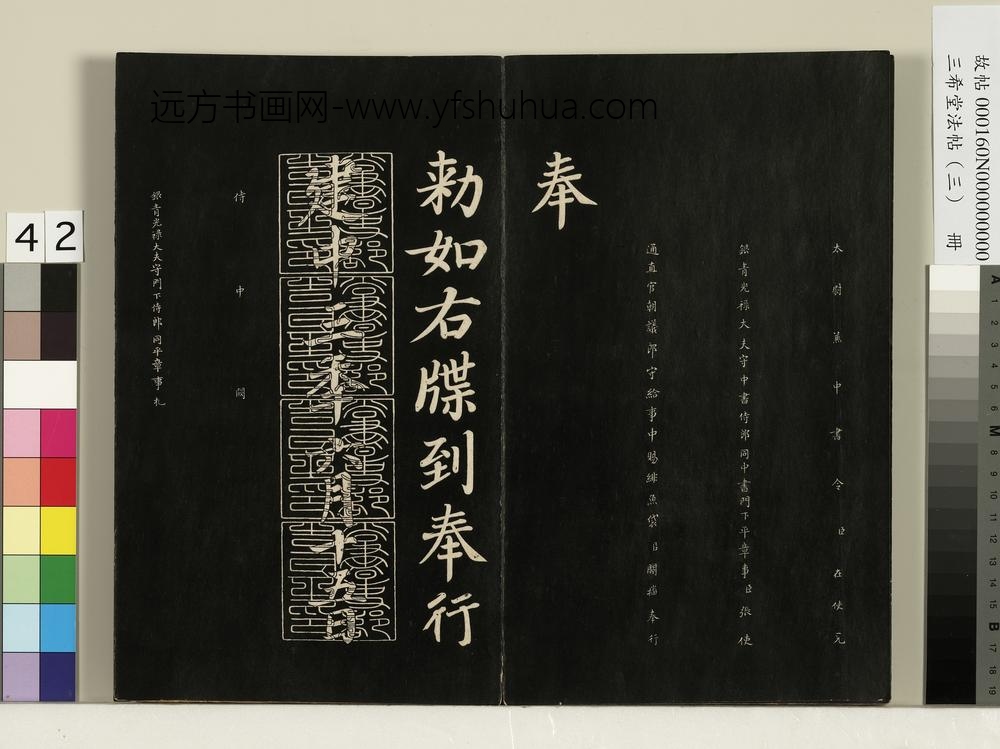 太尉兼中書令臣在使元
銀青光祿大夫守中書侍郎同中書門下平章事臣張使
通直官朝議郎守給事中賜緋魚袋臣關播奉行
奉
勅如右牒到奉行
建中三年六月十五日
侍中闕
銀青光祿大夫守門下侍郎同平章事札
远方书画网-www.yfshuhua.com
故帖 000160N000000000
三希堂法帖（三） 冊
42
A 1 2 3 4 5 6 M 8 9 10 11 12 13 14 15 B 17 18 19